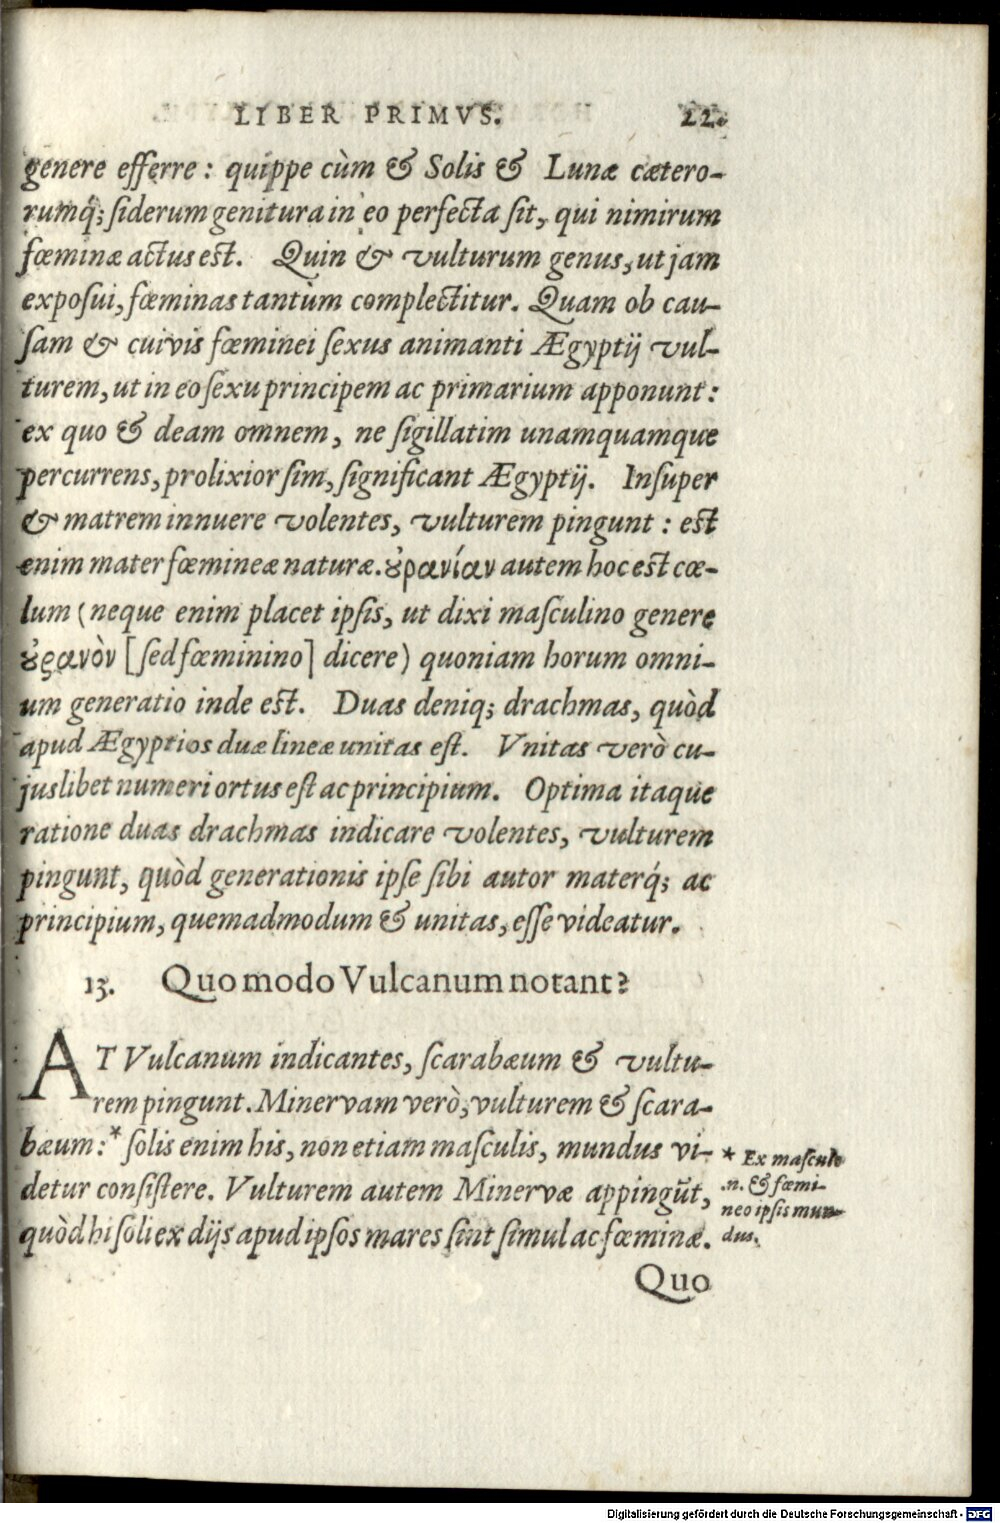 LIBER PRIMVS. 22.
genere efferre: quippe cùm & Solis & Lunæ cætero-
rumq́; siderum genitura in eo perfecta sit, qui nimirum
fœminæ actus est. Quin & vulturum genus, ut jam
exposui, fœminas tantùm complectitur. Quam ob cau-
sam & cuivis fœminei sexus animanti Ægyptij vul-
turem, ut in eo sexu principem ac primarium apponunt:
ex quo & deam omnem, ne sigillatim unamquamque
percurrens, prolixior sim, significant Ægyptij. Insuper
& matrem innuere volentes, vulturem pingunt: est
enim mater fœmineæ naturæ. ȣ̓ρανίαν autem hoc est cœ-
lum (neque enim placet ipsis, ut dixi masculino genere
ȣ̓ρανὸν [sed fœminino] dicere) quoniam horum omni-
um generatio inde est. Duas deniq; drachmas, quòd
apud Ægyptios duæ lineæ unitas est. Vnitas verò cu-
juslibet numeri ortus est ac principium. Optima itaque
ratione duas drachmas indicare volentes, vulturem
pingunt, quòd generationis ipse sibi autor materq́; ac
principium, quemadmodum & unitas, esse videatur.
13. Quomodo Vulcanum notant?
AT Vulcanum indicantes, scarabæum & vultu-
rem pingunt. Minervam verò, vulturem & scara-
bæum: * solis enim his, non etiam masculis, mundus vi-
detur consistere. Vulturem autem Minervæ appingũt,
quòd hi soli ex dijs apud ipsos mares sint simul ac fœminæ.
* Ex masculo
.n. & fœmi-
neo ipsis mun-
dus.
Quo
Digitalisierung gefördert durch die Deutsche Forschungsgemeinschaft - DFG